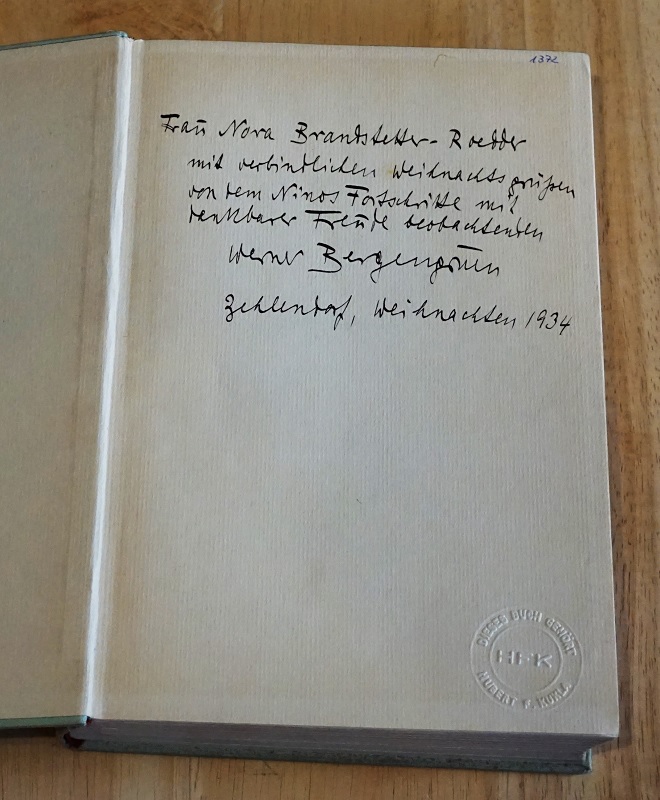 1372
Frau Nora Brandstetter-Roedder
mit verbindlichen Weihnachtsgrüßen
von dem Ninos Fortschritte mit
dankbarer Freude beobachtenden
Werner Bergengruen
Zehlendorf, Weihnachten 1934
DIESES BUCH GEHÖRT
HFK
HUBERT F. KUKLA